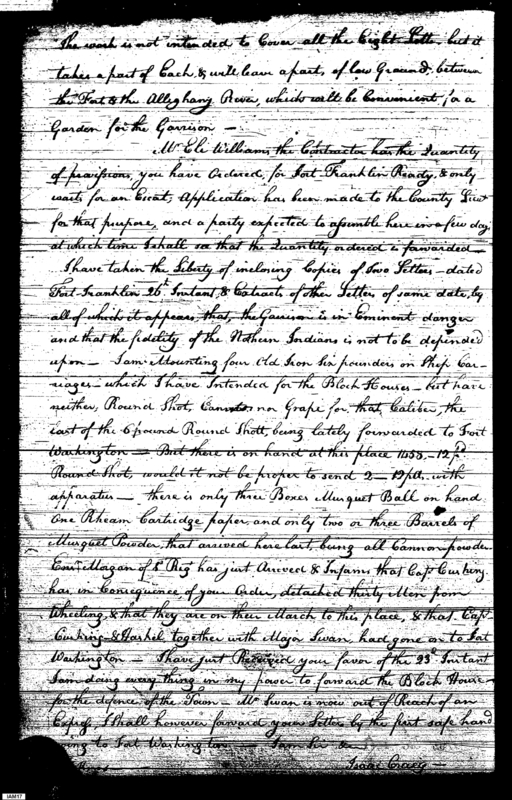 The work is not intended to Cover all the Eight Lotts, but it
takes a part of Each, & will leave a part, of low Ground, between
the Fort & the Alleghany River, which will be Convenient for a
Garden for the Garrison —
Mr. Elie Williams the Contractor has the Quantity
of provissions, you have Ordered, for Fort Franklin Ready, & only
waits for an Escort, Application has been made to the County Lieut
for that purpose, and a party expected to assemble here in a few days
at which time I shall see that the Quantity ordered is forwarded —
I have taken the Liberty of inclosing Copies of Two Letters — dated
Fort Franklin 26t Instant, & Extracts of other Letters of same date, by
all of which it appears, that, the Garrison is in Eminent danger
and that the fidelity of the Nothern Indians is not to be depended
upon — I am Mounting four Old Iron Six pounders on Ship Car-
riages — which I have Intended for the Block Houses — but have
neither, Round Shot, Cannister nor Grape for that Caliber, the
last of the 6 pound Round Shott, being lately forwarded to Fort
Washington — But there is on hand at this place 1455 — 12 pd
Round Shot, would it not be proper to send 2 — 12 pdrs. with
apparatus — there is only three Boxes Musquet Ball on hand
One Rheam Cartridge paper, and only two or three Barrels of
Musquet Powder, that arrived here last, being all Cannon powder
Morgan of Regt has just Arived & Informs that Capt Cushing
has in Consequence of your Order, detached thirty Men from
Wheeling, & that they are on their March to this place, & that Capt
Cushing & Haskel together with Major Swan, had gone on to Fort
Washington — I have just Received your favor of the 23d Instant
I am doing every thing in my power to forward the Block House
for the defence of the Town — Mr Swan is now out of Reach of an
Express, I shall however forward your Letter by the first safe hand
going to Fort Washington — I am Sir &c
Isaac Craig —
IAM17